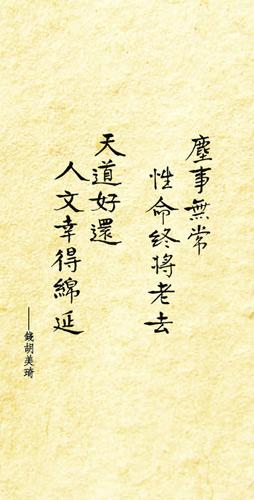 塵事無常
性命終將老去
天道好還
人文幸得綿延
——錢胡美琦